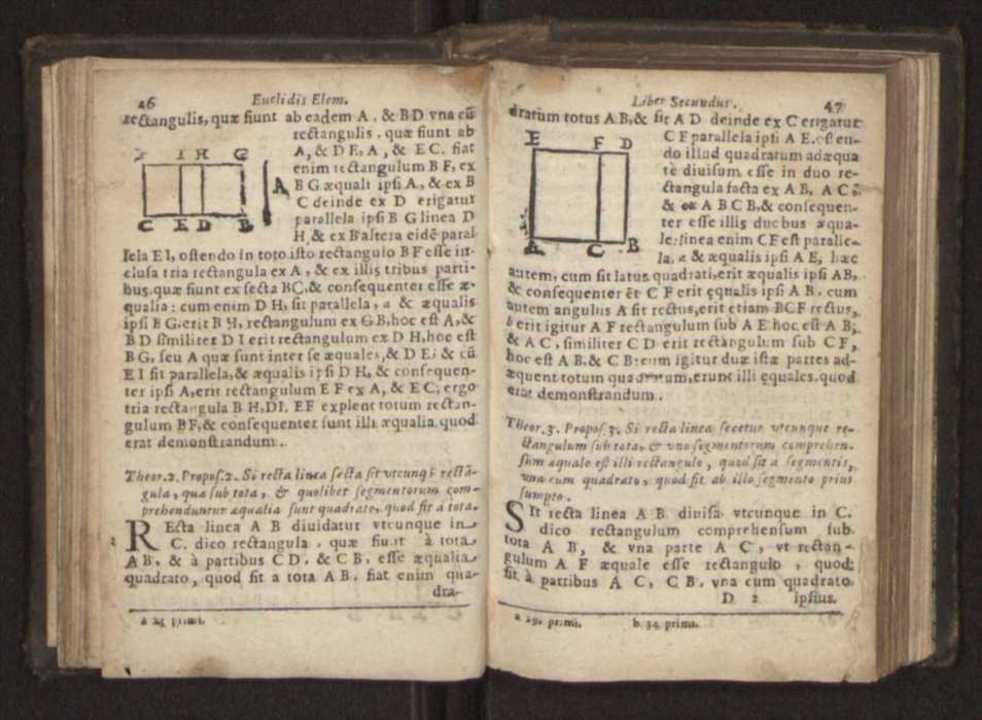 46
Euclidis Elem.
rectangulis, quæ fiunt ab eadem A. & BD vna cũ
rectangulis. quæ fiunt ab
A, & D E, A, & EC. fiat
enim rectangulum B F, ex
B G æquali ipsi A, & ex B
C deinde ex D erigatur
parallela ipsi B G linea D
H, & ex B altera eidē paral
I H G
A
C E D B
lela E I, ostendo in toto isto rectangulo B F esse in-
clusa tria rectangula ex A, & ex illis tribus parti-
bus. quæ fiunt ex secta BC. & consequenter esse æ-
qualia: cum enim D H, sit parallela, a & æqualis
ipsi B G. erit B H, rectangulum ex G B, hoc est A, &
B D similiter D I erit rectangulum ex D H, hoc est
B G, seu A quæ sunt inter se æquales, & D E; & cũ
E I sit parallela, & æqualis ipsi D H, & consequen-
ter ipsi A, erit rectangulum E F ex A, & E C; ergo
tria rectangula B H, DI, EF explent totum rectan-
gulum BF, & consequenter sunt illi æqualia. quod
erat demonstrandum.
Theor.2. Propos.2. Si recta linea secta sit vtcunq; rectã-
gula, qua sub tota, & quolibet segmentorum com-
prehenduntur æqualia sunt quadrato, quod fit a tota.
REcta linea A B diuidatur vtcunque in
C. dico rectangula. quæ fiunt à tota
A B. & à partibus C D. & C B. esse æqualia
quadrato, quod fit a tota A B. fiat enim qua-
dra-
primi.
Liber Secundus.
47
dratum totus A B, & sit A D deinde ex C erigatur
C F parallela ipsi A E. osten-
do illud quadratum adæqua
tè diuisum esse in duo re-
ctangula facta ex A B, A C
& ex A B C B, & consequen-
ter esse illis duobus æqua-
le: linea enim CF est paralle-
la, a & æqualis ipsi A E, hæc
E F D
A C B
autem, cum sit latus quadrati, erit æqualis ipsi AB,
& consequenter ēt C F erit ęqualis ipsi A B. cum
autem angulus A sit rectus, erit etiam BCF rectus,
b erit igitur A F rectangulum sub A E hoc est A B;
& A C, similiter C D erit rectangulum sub C F,
hoc est A B. & C B: cum igitur duæ istæ partes ad-
æquent totum quadratum, erunt illi ęquales. quod
erat demonstrandum.
Theor.3. Propos.3. Si recta linea secetur vtcunque re-
ctangulum sub tota, & vno segmentorum comprehen-
sum aquale est illi rectangulo, quod fit a segmentis,
vna cum quadrato, quod fit ab illo segmento prius
sumpto.
SIt recta linea A B diuisa vtcunque in C.
dico rectangulum comprehensum sub
tota A B, & vna parte A C, vt rectan-
gulum A F æquale esse rectangulo, quod
fit à partibus A C, C B, vna cum quadrato
D 2 ipsius.
primi. b. 34 primi.